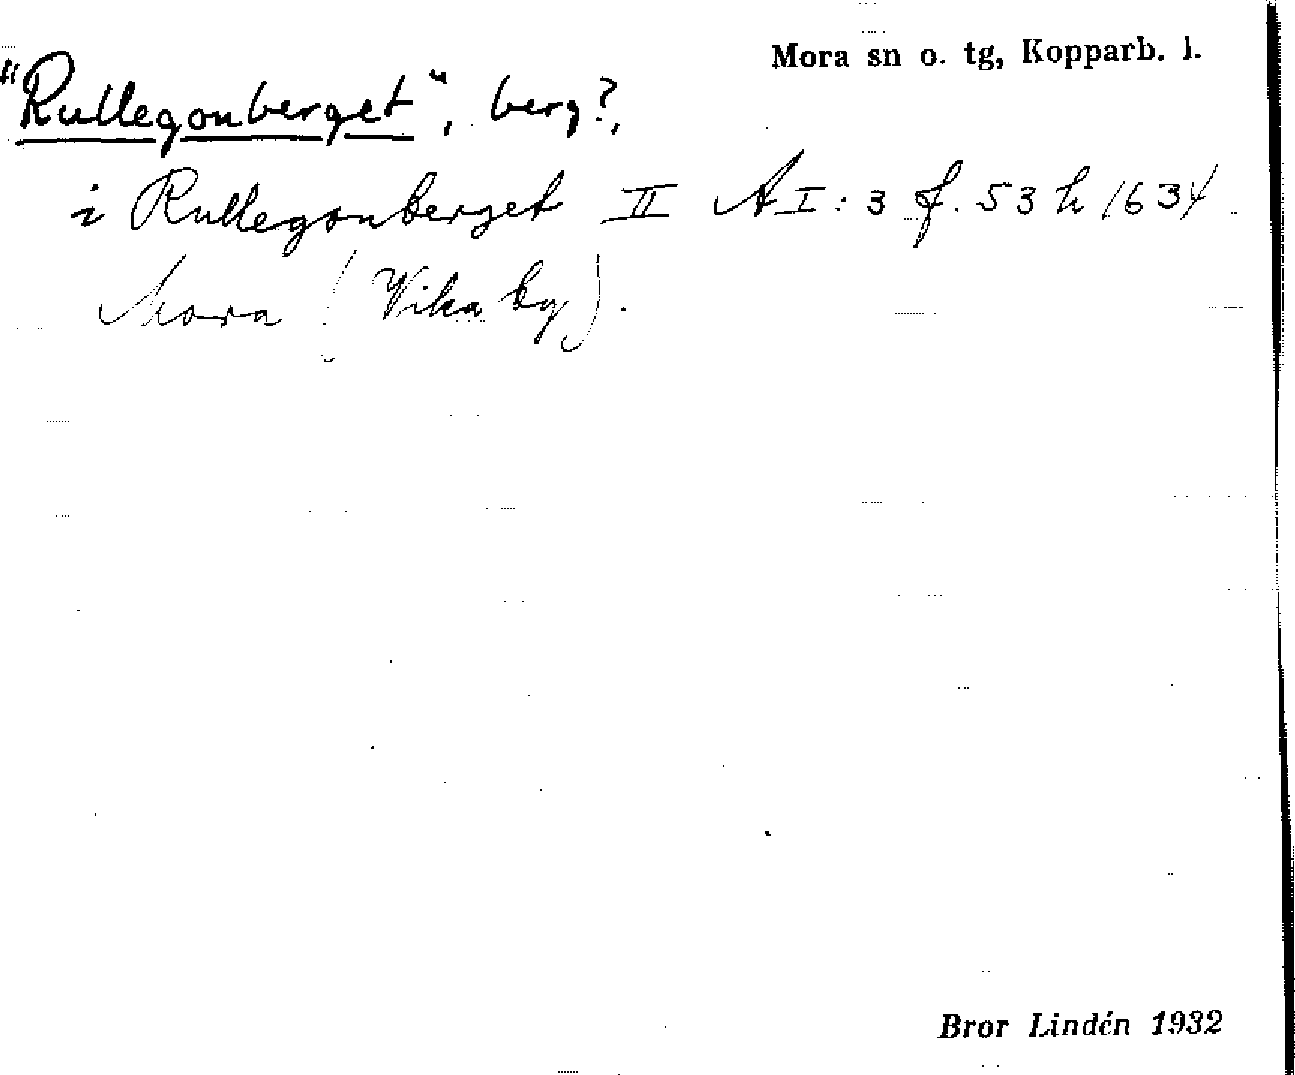 Mora sn o. tg, Kopparb. l.
"Rullegonberget", berg?,
i Rullegonberget II A I:3 f. 53 h 1634
Mora (Vika by).
Bror Lindén 1932